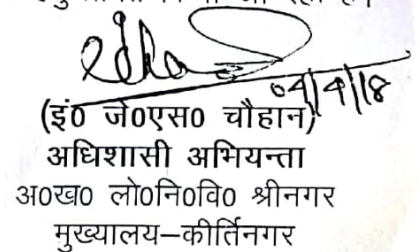 04/4/18
(इं0 जे0एस0 चौहान)
अधिशासी अभियन्ता
अ0ख0 लो0नि0वि0 श्रीनगर
मुख्यालय–कीर्तिनगर